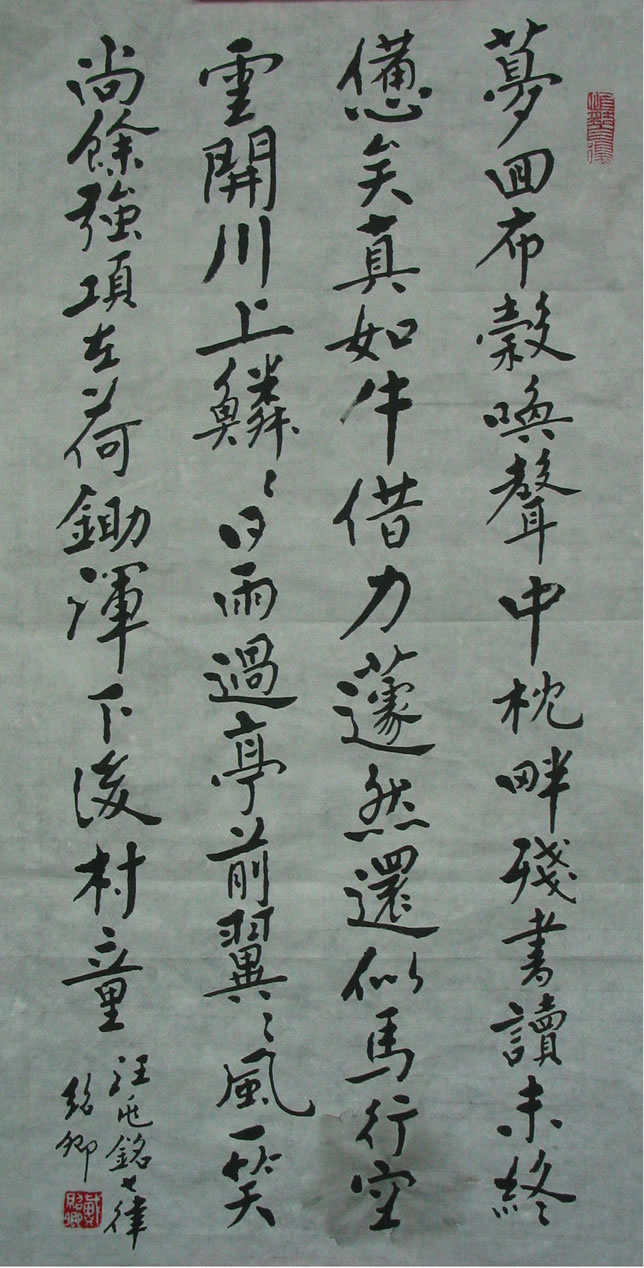 夢回布穀喚聲中枕畔殘書讀未終
憊矣真如牛借力蘧然還似馬行空
雲開川上鱗〻日雨過亭前翼〻風一笑
尚餘強項在荷鋤渾不後村童
汪兆銘七律
卿